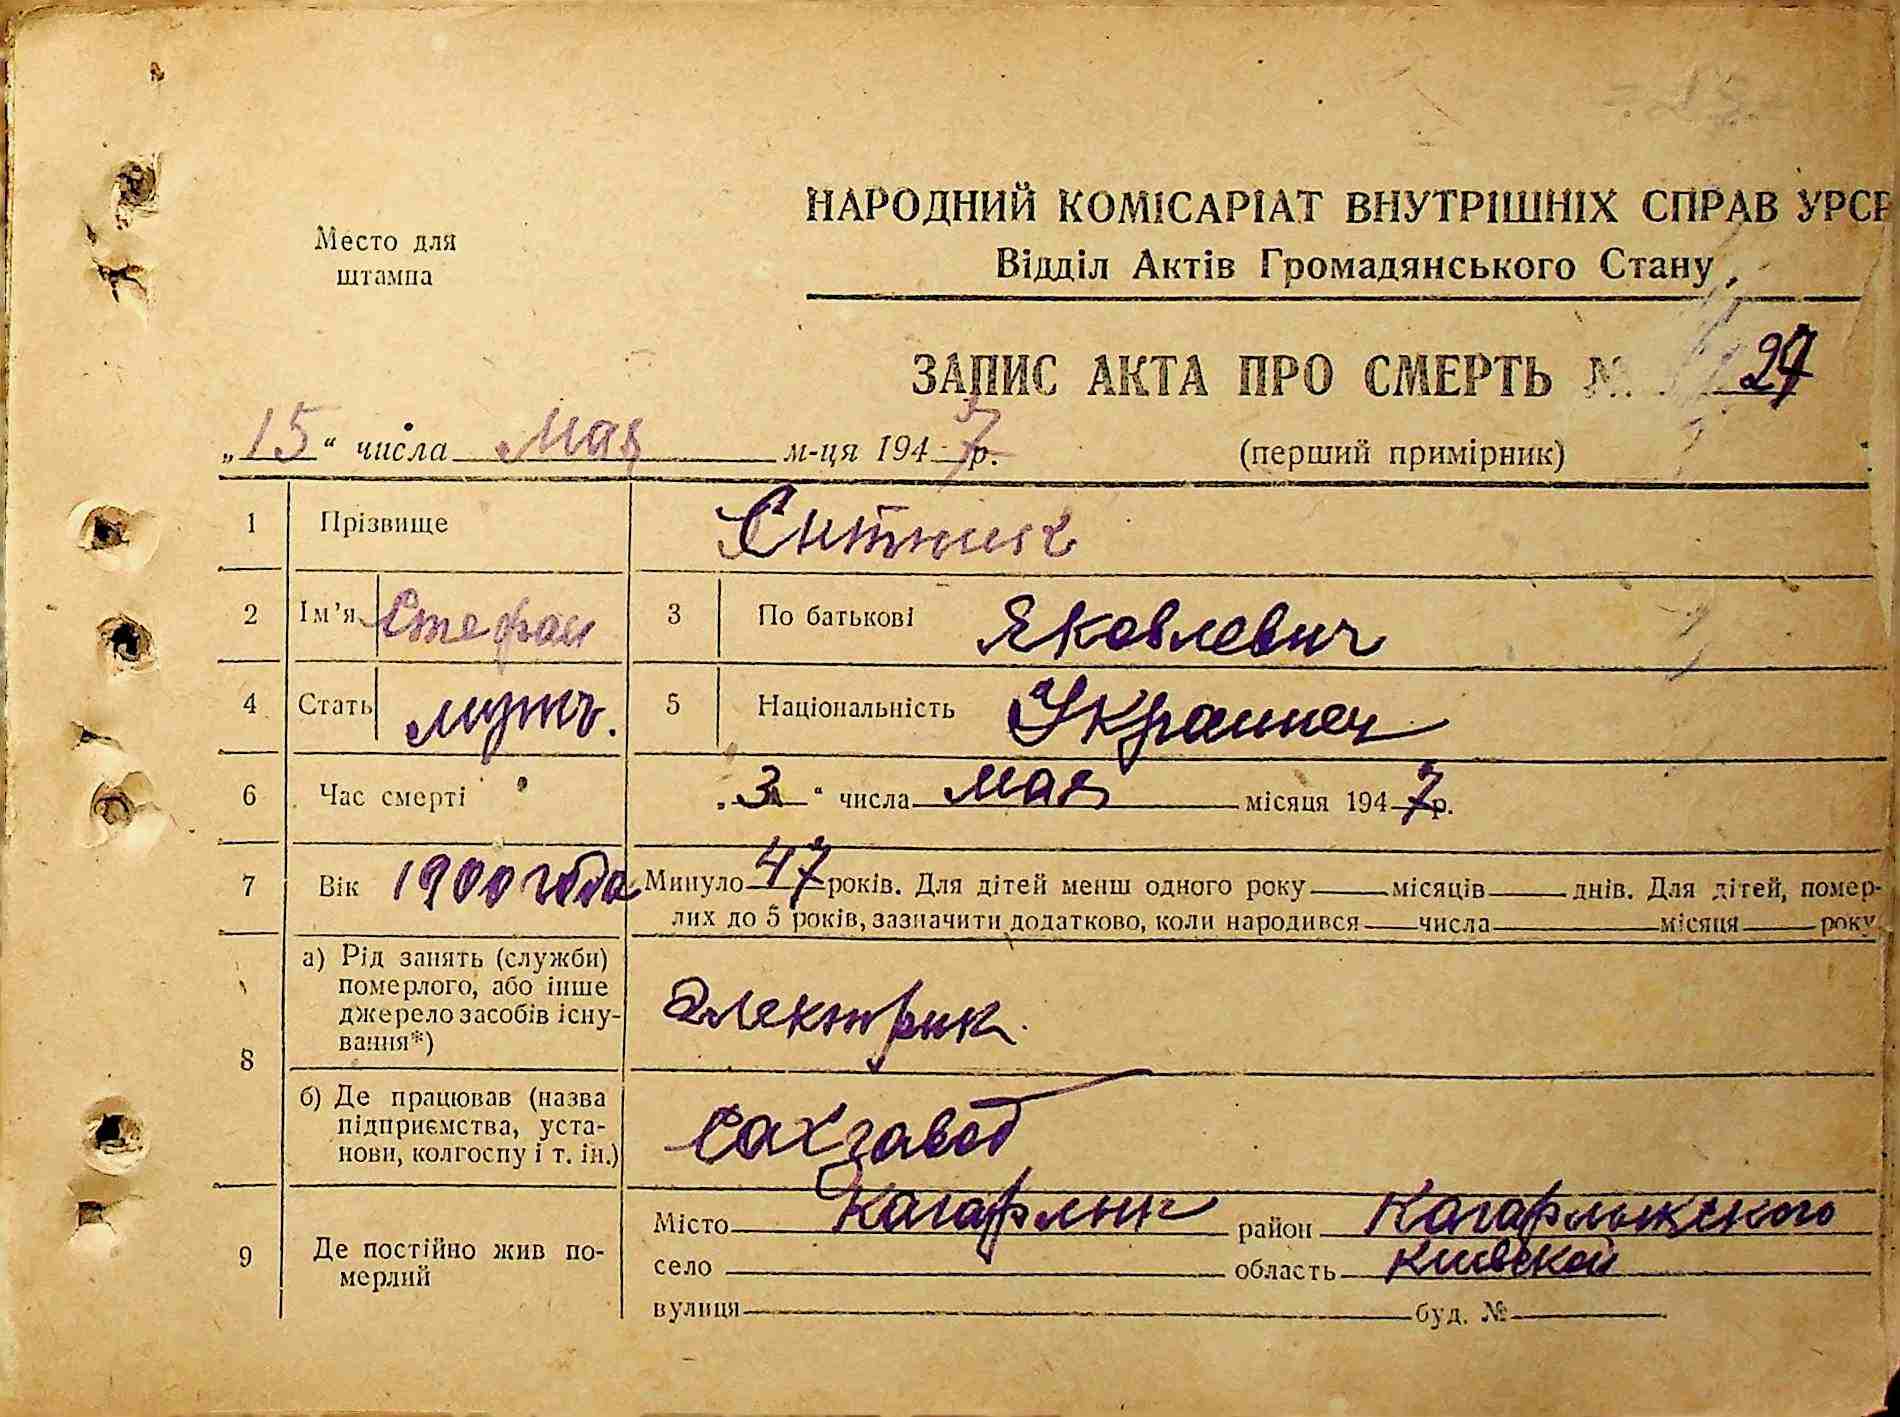 НАРОДНИЙ КОМІСАРІАТ ВНУТРІШНІХ СПРАВ УРСР
Место для
штампа
Відділ Актів Громадянського Стану
ЗАПИС АКТА ПРО СМЕРТЬ № 27
„15“ числа мая м-ця 1947 р.
(перший примірник)
1 Прізвище Ситник
2 Ім’я Стефан 3 По батькові Яковлевич
4 Стать мужч. 5 Національність Украинец
6 Час смерті „3“ числа мая місяця 1947 р.
7 Вік 1900 года Минуло 47 років. Для дітей менш одного року місяців днів. Для дітей, помер-
лих до 5 років, зазначити додатково, коли народився числа місяця року
8 а) Рід занять (служби)
померлого, або інше
джерело засобів існу-
вання*)
Электрик.
б) Де працював (назва
підприємства, уста-
нови, колгоспу і т. ін.)
Сахзавод
9 Де постійно жив по-
мерлий
Місто Кагарлык район Кагарлыкского
село область Киевской
вулиця буд. №